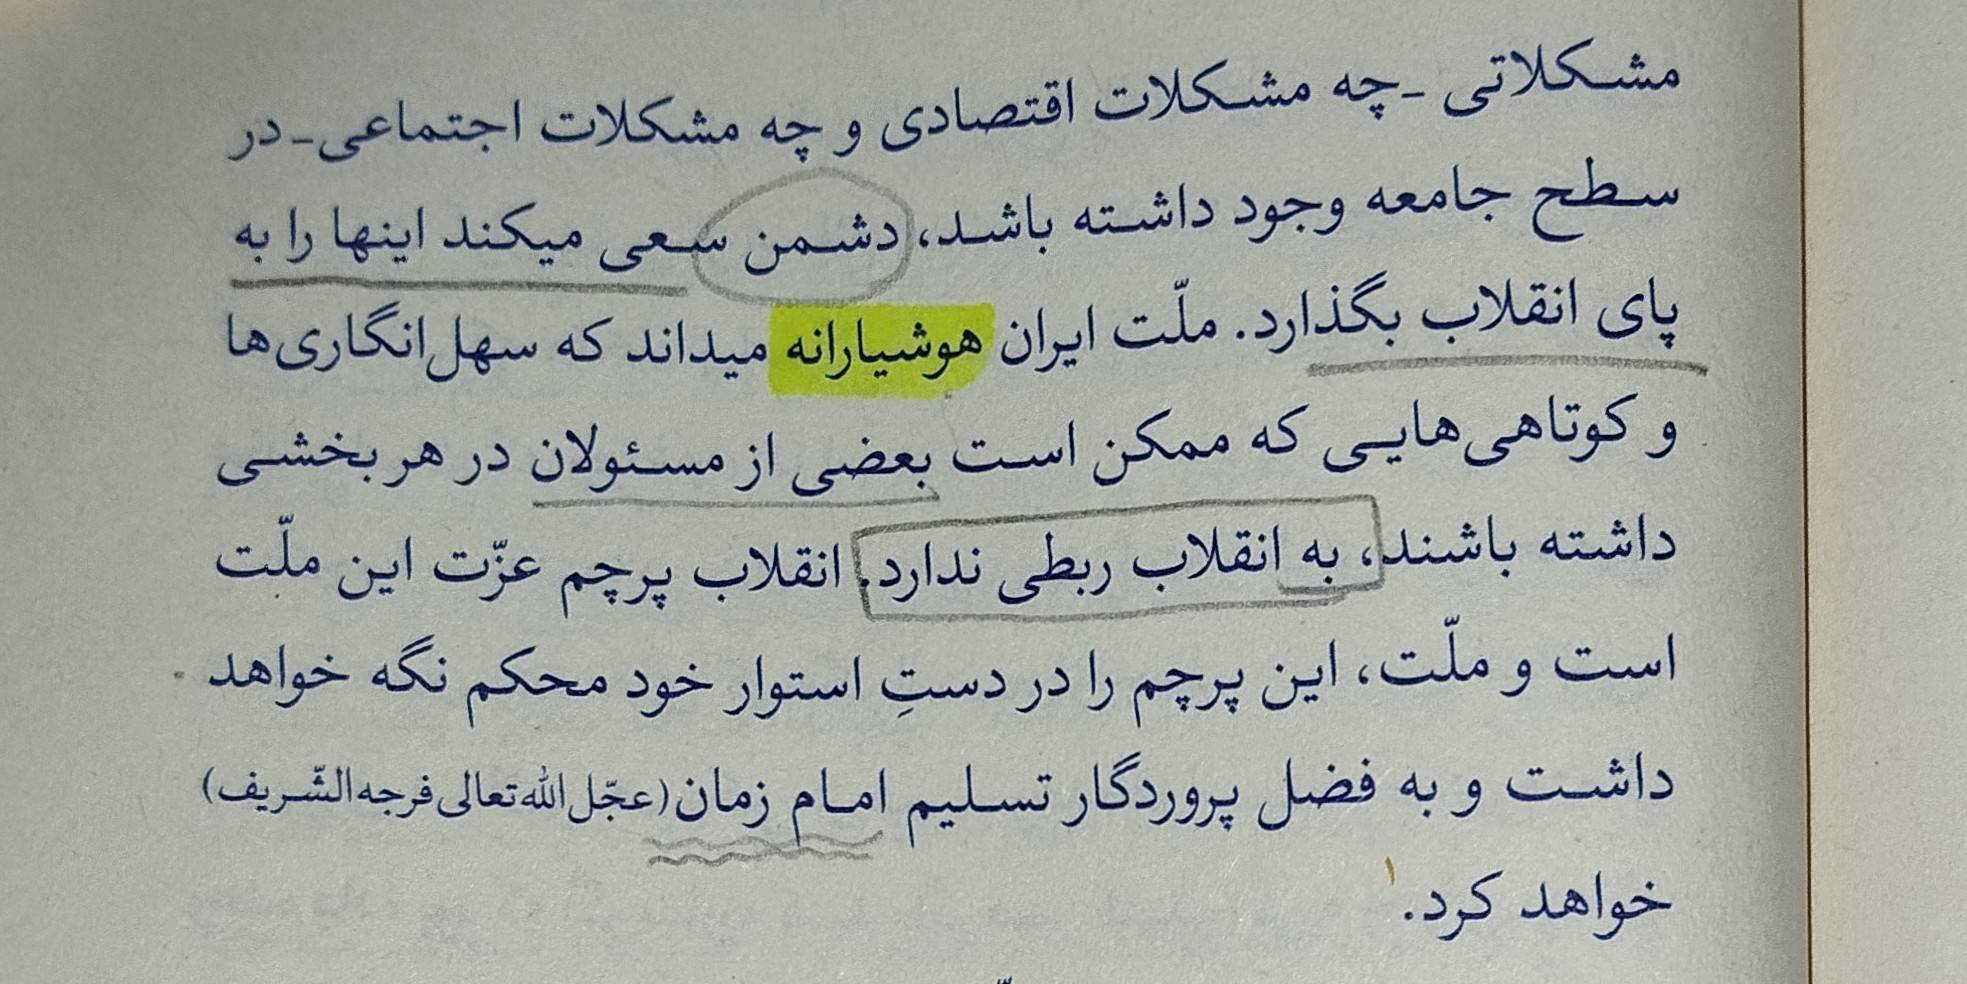 مشکلاتی -چه مشکلات اقتصادی و چه مشکلات اجتماعی- در
سطح جامعه وجود داشته باشد، دشمن سعی میکند اینها را به
پای انقلاب بگذارد. ملّت ایران هوشیارانه میداند که سهل‌انگاری‌ها
و کوتاهی‌هایی که ممکن است بعضی از مسئولان در هر بخشی
داشته باشند، به انقلاب ربطی ندارد. انقلاب پرچم عزّت این ملّت
است و ملّت، این پرچم را در دستِ استوار خود محکم نگه خواهد
داشت و به فضل پروردگار تسلیم امام زمان (عجّل‌الله‌تعالی‌فرجه‌الشّریف)
خواهد کرد.¹